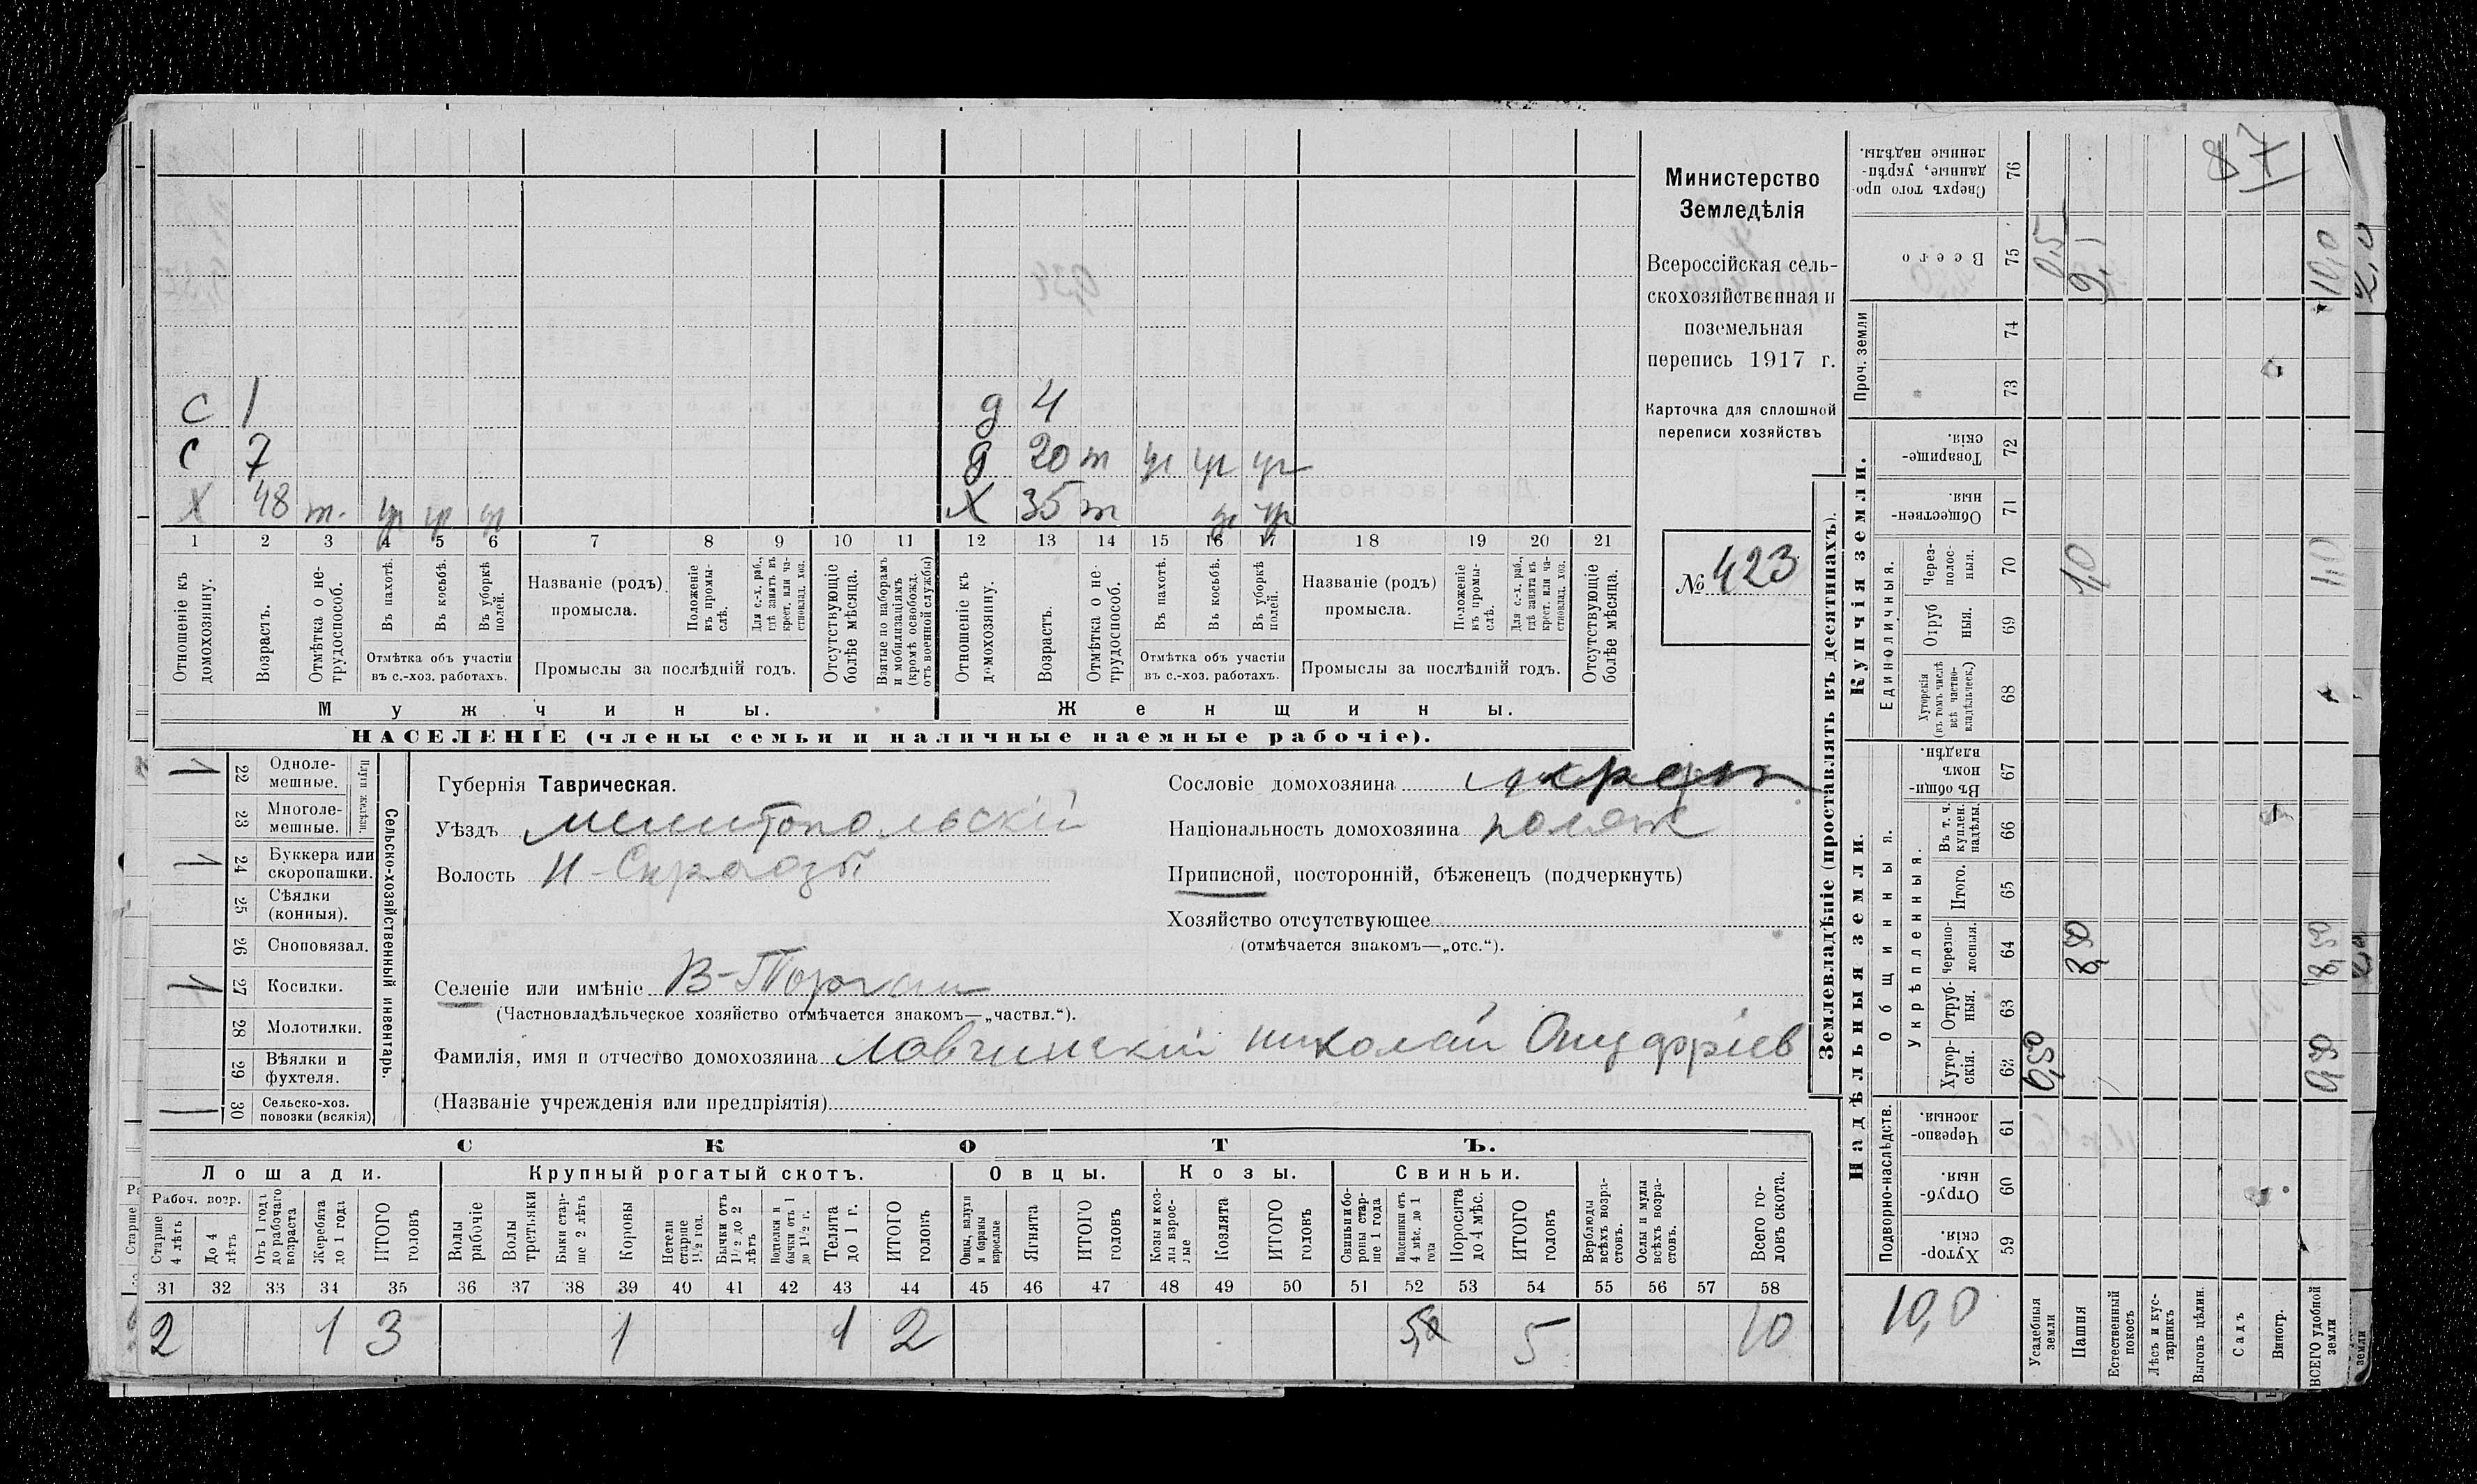 с 1
с 7
х 48 т. уч уч уч
д 4
д 20 т уч уч уч
х 35 т уч уч
1 2 3 4 5 6 7 8 9 10 11 12 13 14 15 16 17 18 19 20 21
Отношеніе къ домохозяину.
Возрастъ.
Отмѣтка о нетрудоспособ.
Въ пахотѣ.
Въ косьбѣ.
Въ уборкѣ полей.
Отмѣтка объ участіи
въ с.-хоз. работахъ.
Названіе (родъ)
промысла.
Положеніе въ промыслѣ.
Для с.-х. раб., гдѣ занятъ въ крест. или частновлад. хоз.
Промыслы за послѣдній годъ.
Отсутствующіе болѣе мѣсяца.
Взятые по наборамъ и мобилизаціямъ (кромѣ освобожд. отъ военной службы)
Отношеніе къ домохозяину.
Возрастъ.
Отмѣтка о нетрудоспособ.
Въ пахотѣ.
Въ косьбѣ.
Въ уборкѣ полей.
Отмѣтка объ участіи
въ с.-хоз. работахъ.
Названіе (родъ)
промысла.
Положеніе въ промыслѣ.
Для с.-х. раб., гдѣ занята въ крест. или частновлад. хоз.
Промыслы за послѣдній годъ.
Отсутствующіе болѣе мѣсяца.
Мужчины.
Женщины.
НАСЕЛЕНІЕ (члены семьи и наличные наемные рабочіе).
Министерство
Земледѣлія
Всероссійская сель-
скохозяйственная и
поземельная
перепись 1917 г.
Карточка для сплошной
переписи хозяйствъ
№ 423
1 22 Одноле-
мешные.
23 Многоле-
мешные.
Плуги желѣзн.
1 24 Буккера или
скоропашки.
25 Сѣялки
(конныя).
26 Сноповязал.
1 27 Косилки.
28 Молотилки.
29 Вѣялки и
фухтеля.
1 30 Сельско-хоз.
повозки (всякія)
Сельско-хозяйственный инвентарь.
Губернія Таврическая.
Уѣздъ Мелитопольскій
Волость
Селеніе или имѣніе В-Торгаи
(Частновладѣльческое хозяйство отмѣчается знакомъ—„частвл.“).
Фамилія, имя и отчество домохозяина Ловчинскій Николай Онуфріев
(Названіе учрежденія или предпріятія)
Сословіе домохозяина
Національность домохозяина поляк
Приписной, посторонній, бѣженецъ (подчеркнуть)
Хозяйство отсутствующее
(отмѣчается знакомъ—„отс.“).
СКОТЪ.
Лошади. Крупный рогатый скотъ. Овцы. Козы. Свиньи.
Рабоч. возр.
Старше 4 лѣтъ
До 4 лѣтъ
Отъ 1 года до рабочаго возраста
Жеребята до 1 года
ИТОГО головъ
Волы рабочіе
Волы третьяки
Быки старше 2 лѣтъ
Коровы
Нетели старше 1½ год.
Бычки отъ 1½ до 2 лѣтъ
Подтелки и бычки отъ 1 до 1½ г.
Телята до 1 г.
ИТОГО головъ
Овцы, валухи и бараны взрослые
Ягнята
ИТОГО головъ
Козы и козлы взрослые
Козлята
ИТОГО головъ
Свиньи и бороны старше 1 года
Подсвинки отъ 4 мѣс. до 1 года
Поросята до 4 мѣс.
ИТОГО головъ
Верблюды всѣхъ возрастовъ.
Ослы и мулы всѣхъ возрастовъ.
Всего головъ скота.
31 32 33 34 35 36 37 38 39 40 41 42 43 44 45 46 47 48 49 50 51 52 53 54 55 56 57 58
2 1 3 1 1 2 5 10
Землевладѣніе (проставлять въ десятинахъ).
Купчія земли.
Надѣльныя земли.
Сверхъ того проданные, укрѣпленные надѣлы. 76
Всего 75 0,5 9, 10,0
Проч. земли 74 73
Товарищескія. 72
Общественныя. 71
Единоличныя.
Черезполосныя. 70 1,0 1,0
Отрубныя. 69
Хуторскія (въ томъ числѣ всѣ частновладѣльческ.) 68
Общинныя.
Въ общинномъ владѣн. 67
Укрѣпленныя.
Въ т. ч. куплен. надѣлы. 66
Итого. 65
Черезполосныя. 64 8,50 8,50
Отрубныя. 63
Хуторскія. 62 0,50 0,50
Подворно-наслѣдств.
Черезполосныя. 61
Отрубныя. 60
Хуторскія. 59
10,0
Усадебныя земли
Пашня
Естественный покосъ
Лѣсъ и кустарникъ
Выгонъ цѣлин.
Садъ
Виногр.
ВСЕГО удобной земли
87